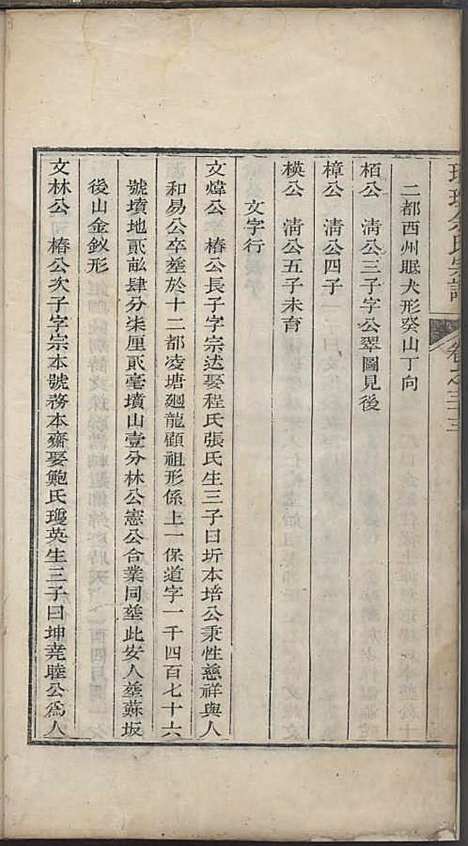 氏宗譜
卷之三
二都西州眠犬形癸山丁向
栢公 淸公三子字公翠圖見後
樟公 淸公四子
模公 淸公五子未育
文字行
文煒公 椿公長子字宗述娶程氏張氏生三子曰圻本培公秉性慈祥與人
和易公卒塟於十二都凌塘廻龍顧祖形係上一保道字一千四百七十六
號墳地貳畝肆分柒厘貳毫墳山壹分林公憲公合業同塟此安人塟蘇坂
後山金釵形
文林公 椿公次子字宗本號務本齋娶鮑氏瓊英生三子曰坤堯睦公爲人